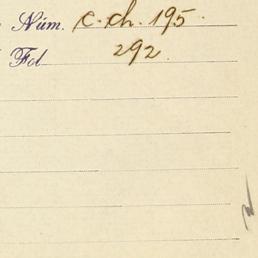 Núm. C. Ch. 195.
Fol 292.